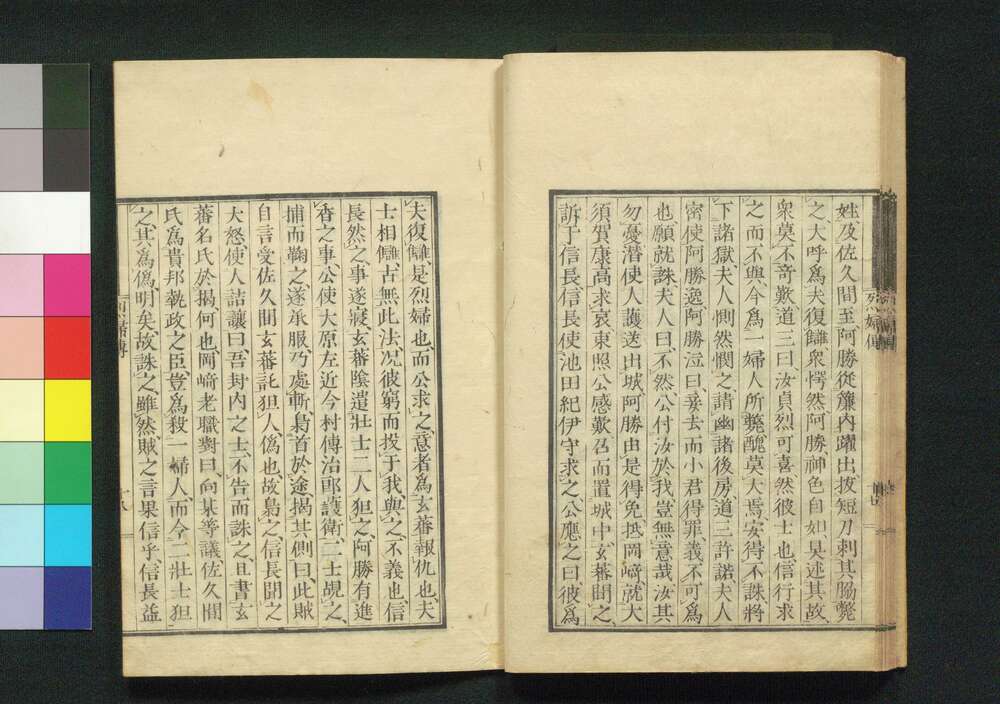 姓及佐久間至阿勝從簾内躍出拔短刀刺其胸斃
之大呼為夫復讎衆愕然阿勝神色自如具述其故
衆莫不奇歎道三曰汝貞烈可喜然彼士也信行求
之而不與今為一婦人所斃醜莫大焉安得不誅將
下諸獄夫人惻然憫之請幽諸後房道三許諾夫人
密使阿勝逸阿勝泣曰妾去而小君得罪義不可為
也願就誅夫人曰不然公付汝於我豈無意哉汝其
勿憂潜使人護送出城阿勝由是得免抵岡﨑就大
須賀康高求哀東照公感歎召而置城中玄蕃聞之
訴于信長信長使池田紀伊守求之公應之曰彼為
夫復讎是烈婦也而公求之意者為玄蕃報仇也夫
士相讎古無此法况彼窮而投于我與之不義也信
長然之事遂寢玄蕃陰遣壯士二人犯之阿勝有進
香之事公使大原左近今村傳治郎護衛二士覘之
捕而鞠之遂承服乃處斬梟首於途揭其側曰此賊
自言受佐久間玄蕃託狙人僞也故梟之信長聞之
大怒使人詰讓曰吾封内之士不告而誅之且書玄
蕃名氏於揭何也岡﨑老職對曰向某等議佐久間
氏為貴邦執政之臣豈為殺一婦人而令二壯士狙
之其為僞明矣故誅之雖然賊之言果信乎信長益
烈婦傳